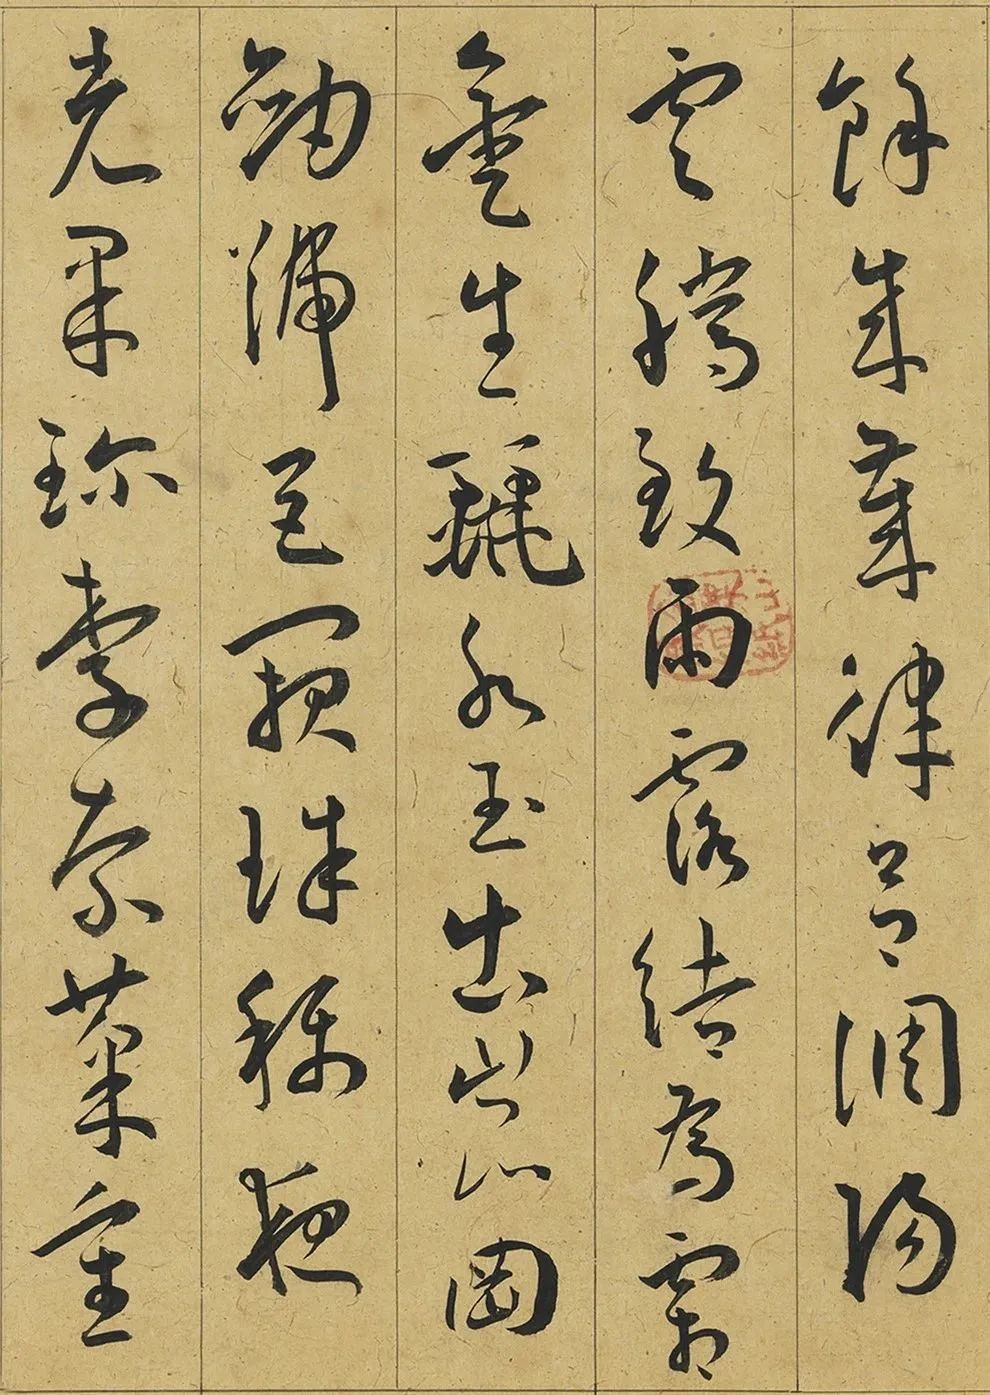 餘成歲律呂調陽
雲騰致雨露結為霜
金生麗水玉出崑岡
劍號巨闕珠稱夜
光果珍李柰菜重